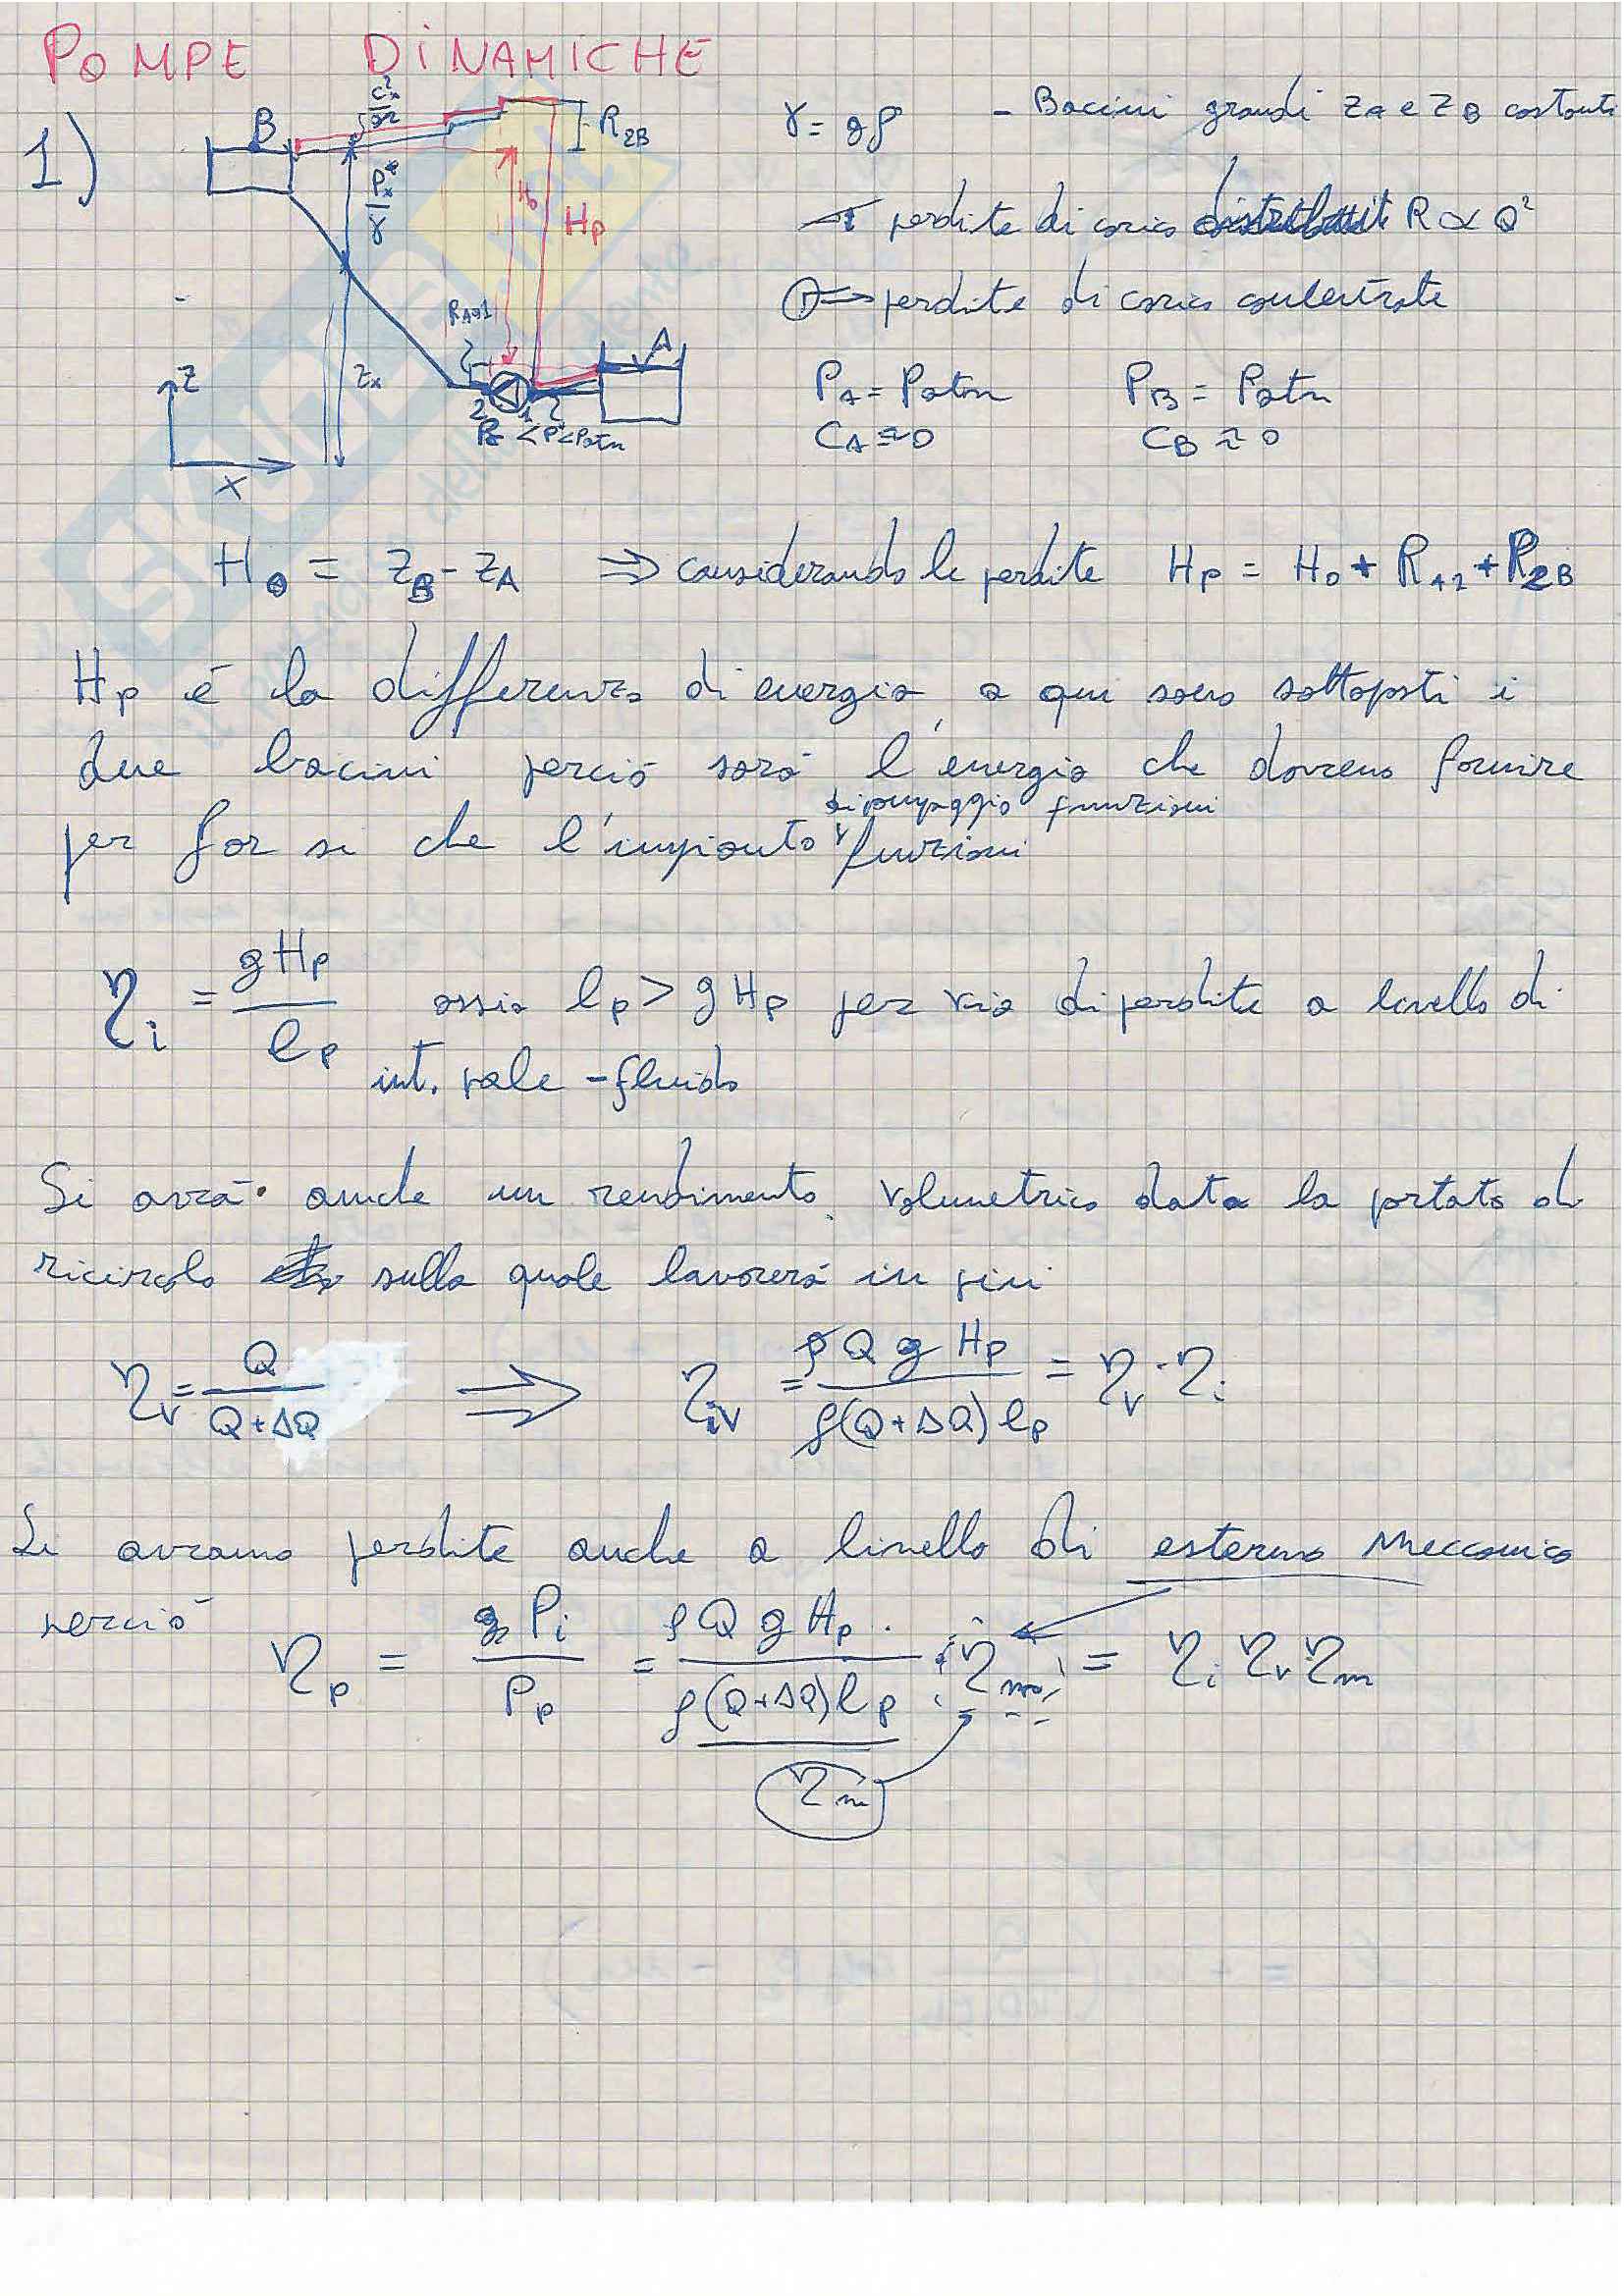 POMPE DINAMICHE
1)
B
c²x
2g
P*x
γ
Zx
Z
X
R2B
H0
Hp
RA→1
A
2
1
<P<Patm
γ = gρ
- Bacini grandi ZA e ZB costanti
perdite di carico R ∝ Q²
⇒ perdite di carico concentrate
PA = Patm PB = Patm
CA ≈ 0 CB ≈ 0
H0 = ZB - ZA ⇒ considerando le perdite Hp = H0 + RA1 + R2B
Hp é la differenza di energia a qui sono sottoposti i
due bacini perció sará l'energia che dovremo fornire
di pompaggio funzioni
per far si che l'impianto funzioni
ηi = gHp / lp ossia lp > gHp per via di perdite a livello di
int. pale - fluido
Si avrá anche un rendimento volumetrico data la portata di
ricircolo sulla quale lavorerá in piú
ηv = Q / (Q+ΔQ) ⇒ ηiv = ρQgHp / ρ(Q+ΔQ)lp = ηv · ηi
Si avranno perdite anche a livello di esterno meccanico
perció
ηp = Pi / Pp = ρQgHp / ρ(Q+ΔQ)lp · ηm = ηi ηv ηm
ηm